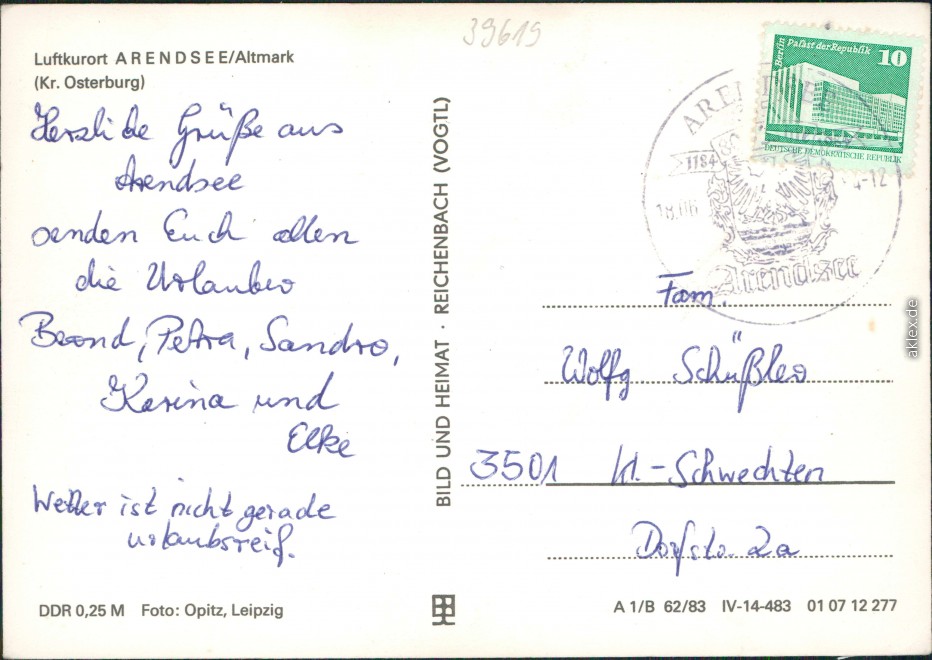 39619
Luftkurort ARENDSEE/Altmark
(Kr. Osterburg)
Herzliche Grüße aus
Arendsee
senden Euch allen
die Urlauber
Bernd, Petra, Sandro,
Karina und
Elke
Wetter ist nicht gerade
urlaubsreif.
DDR 0,25 M Foto: Opitz, Leipzig
BILD UND HEIMAT · REICHENBACH (VOGTL)
Berlin Palast der Republik 10
DEUTSCHE DEMOKRATISCHE REPUBLIK
ARENDSEE
1184
18.06
4-12
Arendsee
Fam.
Wolfg Schüßler
3501 Kl.-Schwechten
Dorfstr. 2a
A 1/B 62/83 IV-14-483 01 07 12 277
aklex.de